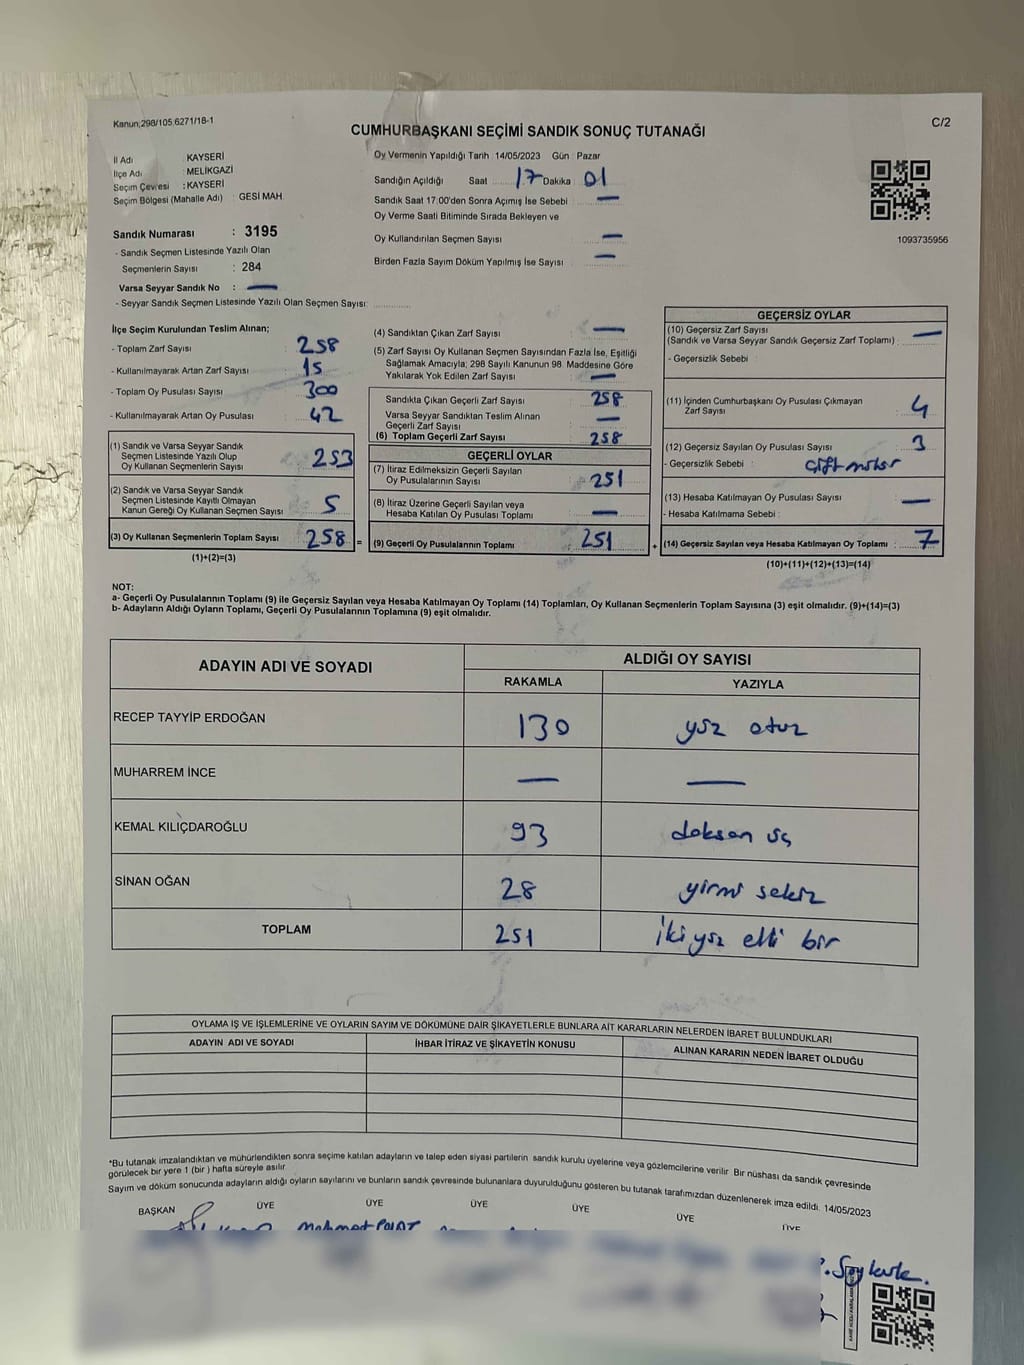 Kanun;298/105,6271/18-1
C/2
CUMHURBAŞKANI SEÇİMİ SANDIK SONUÇ TUTANAĞI
İl Adı : KAYSERİ
İlçe Adı : MELİKGAZİ
Seçim Çevresi : KAYSERİ
Seçim Bölgesi (Mahalle Adı) : GESİ MAH.
Oy Vermenin Yapıldığı Tarih : 14/05/2023 Gün : Pazar
Sandığın Açıldığı Saat 17 Dakika 01
Sandık Saat 17.00'den Sonra Açımış İse Sebebi : —
Oy Verme Saati Bitiminde Sırada Bekleyen ve
Oy Kullandırılan Seçmen Sayısı : —
Birden Fazla Sayım Döküm Yapılmış İse Sayısı : —
1093735956
Sandık Numarası : 3195
- Sandık Seçmen Listesinde Yazılı Olan
Seçmenlerin Sayısı : 284
Varsa Seyyar Sandık No : —
- Seyyar Sandık Seçmen Listesinde Yazılı Olan Seçmen Sayısı:
İlçe Seçim Kurulundan Teslim Alınan;
- Toplam Zarf Sayısı : 258
- Kullanılmayarak Artan Zarf Sayısı : 15
- Toplam Oy Pusulası Sayısı : 300
- Kullanılmayarak Artan Oy Pusulası : 42
(1) Sandık ve Varsa Seyyar Sandık
Seçmen Listesinde Yazılı Olup
Oy Kullanan Seçmenlerin Sayısı : 253
(2) Sandık ve Varsa Seyyar Sandık
Seçmen Listesinde Kayıtlı Olmayan
Kanun Gereği Oy Kullanan Seçmen Sayısı : 5
(3) Oy Kullanan Seçmenlerin Toplam Sayısı : 258 =
(1)+(2)=(3)
(4) Sandıktan Çıkan Zarf Sayısı : —
(5) Zarf Sayısı Oy Kullanan Seçmen Sayısından Fazla İse, Eşitliği
Sağlamak Amacıyla; 298 Sayılı Kanunun 98. Maddesine Göre
Yakılarak Yok Edilen Zarf Sayısı : —
Sandıkta Çıkan Geçerli Zarf Sayısı : 258
Varsa Seyyar Sandıktan Teslim Alınan
Geçerli Zarf Sayısı : —
(6) Toplam Geçerli Zarf Sayısı : 258
GEÇERLİ OYLAR
(7) İtiraz Edilmeksizin Geçerli Sayılan
Oy Pusulalarının Sayısı : 251
(8) İtiraz Üzerine Geçerli Sayılan veya
Hesaba Katılan Oy Pusulası Toplamı : —
(9) Geçerli Oy Pusulalarının Toplamı : 251 +
GEÇERSİZ OYLAR
(10) Geçersiz Zarf Sayısı
(Sandık ve Varsa Seyyar Sandık Geçersiz Zarf Toplamı) : —
- Geçersizlik Sebebi :
(11) İçinden Cumhurbaşkanı Oy Pusulası Çıkmayan
Zarf Sayısı : 4
(12) Geçersiz Sayılan Oy Pusulası Sayısı : 3
- Geçersizlik Sebebi : çift mühür
(13) Hesaba Katılmayan Oy Pusulası Sayısı : —
- Hesaba Katılmama Sebebi :
(14) Geçersiz Sayılan veya Hesaba Katılmayan Oy Toplamı : 7
(10)+(11)+(12)+(13)=(14)
NOT:
a- Geçerli Oy Pusulalarının Toplamı (9) ile Geçersiz Sayılan veya Hesaba Katılmayan Oy Toplamı (14) Toplamları, Oy Kullanan Seçmenlerin Toplam Sayısına (3) eşit olmalıdır. (9)+(14)=(3)
b- Adayların Aldığı Oyların Toplamı, Geçerli Oy Pusulalarının Toplamına (9) eşit olmalıdır.
ADAYIN ADI VE SOYADI ALDIĞI OY SAYISI
RAKAMLA YAZIYLA
RECEP TAYYİP ERDOĞAN 130 yüz otuz
MUHARREM İNCE — —
KEMAL KILIÇDAROĞLU 93 doksan üç
SİNAN OĞAN 28 yirmi sekiz
TOPLAM 251 iki yüz elli bir
OYLAMA İŞ VE İŞLEMLERİNE VE OYLARIN SAYIM VE DÖKÜMÜNE DAİR ŞİKAYETLERLE BUNLARA AİT KARARLARIN NELERDEN İBARET BULUNDUKLARI
ADAYIN ADI VE SOYADI İHBAR İTİRAZ VE ŞİKAYETİN KONUSU ALINAN KARARIN NEDEN İBARET OLDUĞU
*Bu tutanak imzalandıktan ve mühürlendikten sonra seçime katılan adayların ve talep eden siyasi partilerin sandık kurulu üyelerine veya gözlemcilerine verilir. Bir nüshası da sandık çevresinde
görülecek bir yere 1 (bir ) hafta süreyle asılır.
Sayım ve döküm sonucunda adayların aldığı oyların sayılarını ve bunların sandık çevresinde bulunanlara duyurulduğunu gösteren bu tutanak tarafımızdan düzenlenerek imza edildi. 14/05/2023
BAŞKAN ÜYE ÜYE ÜYE ÜYE ÜYE ÜYE
Mehmet POLAT